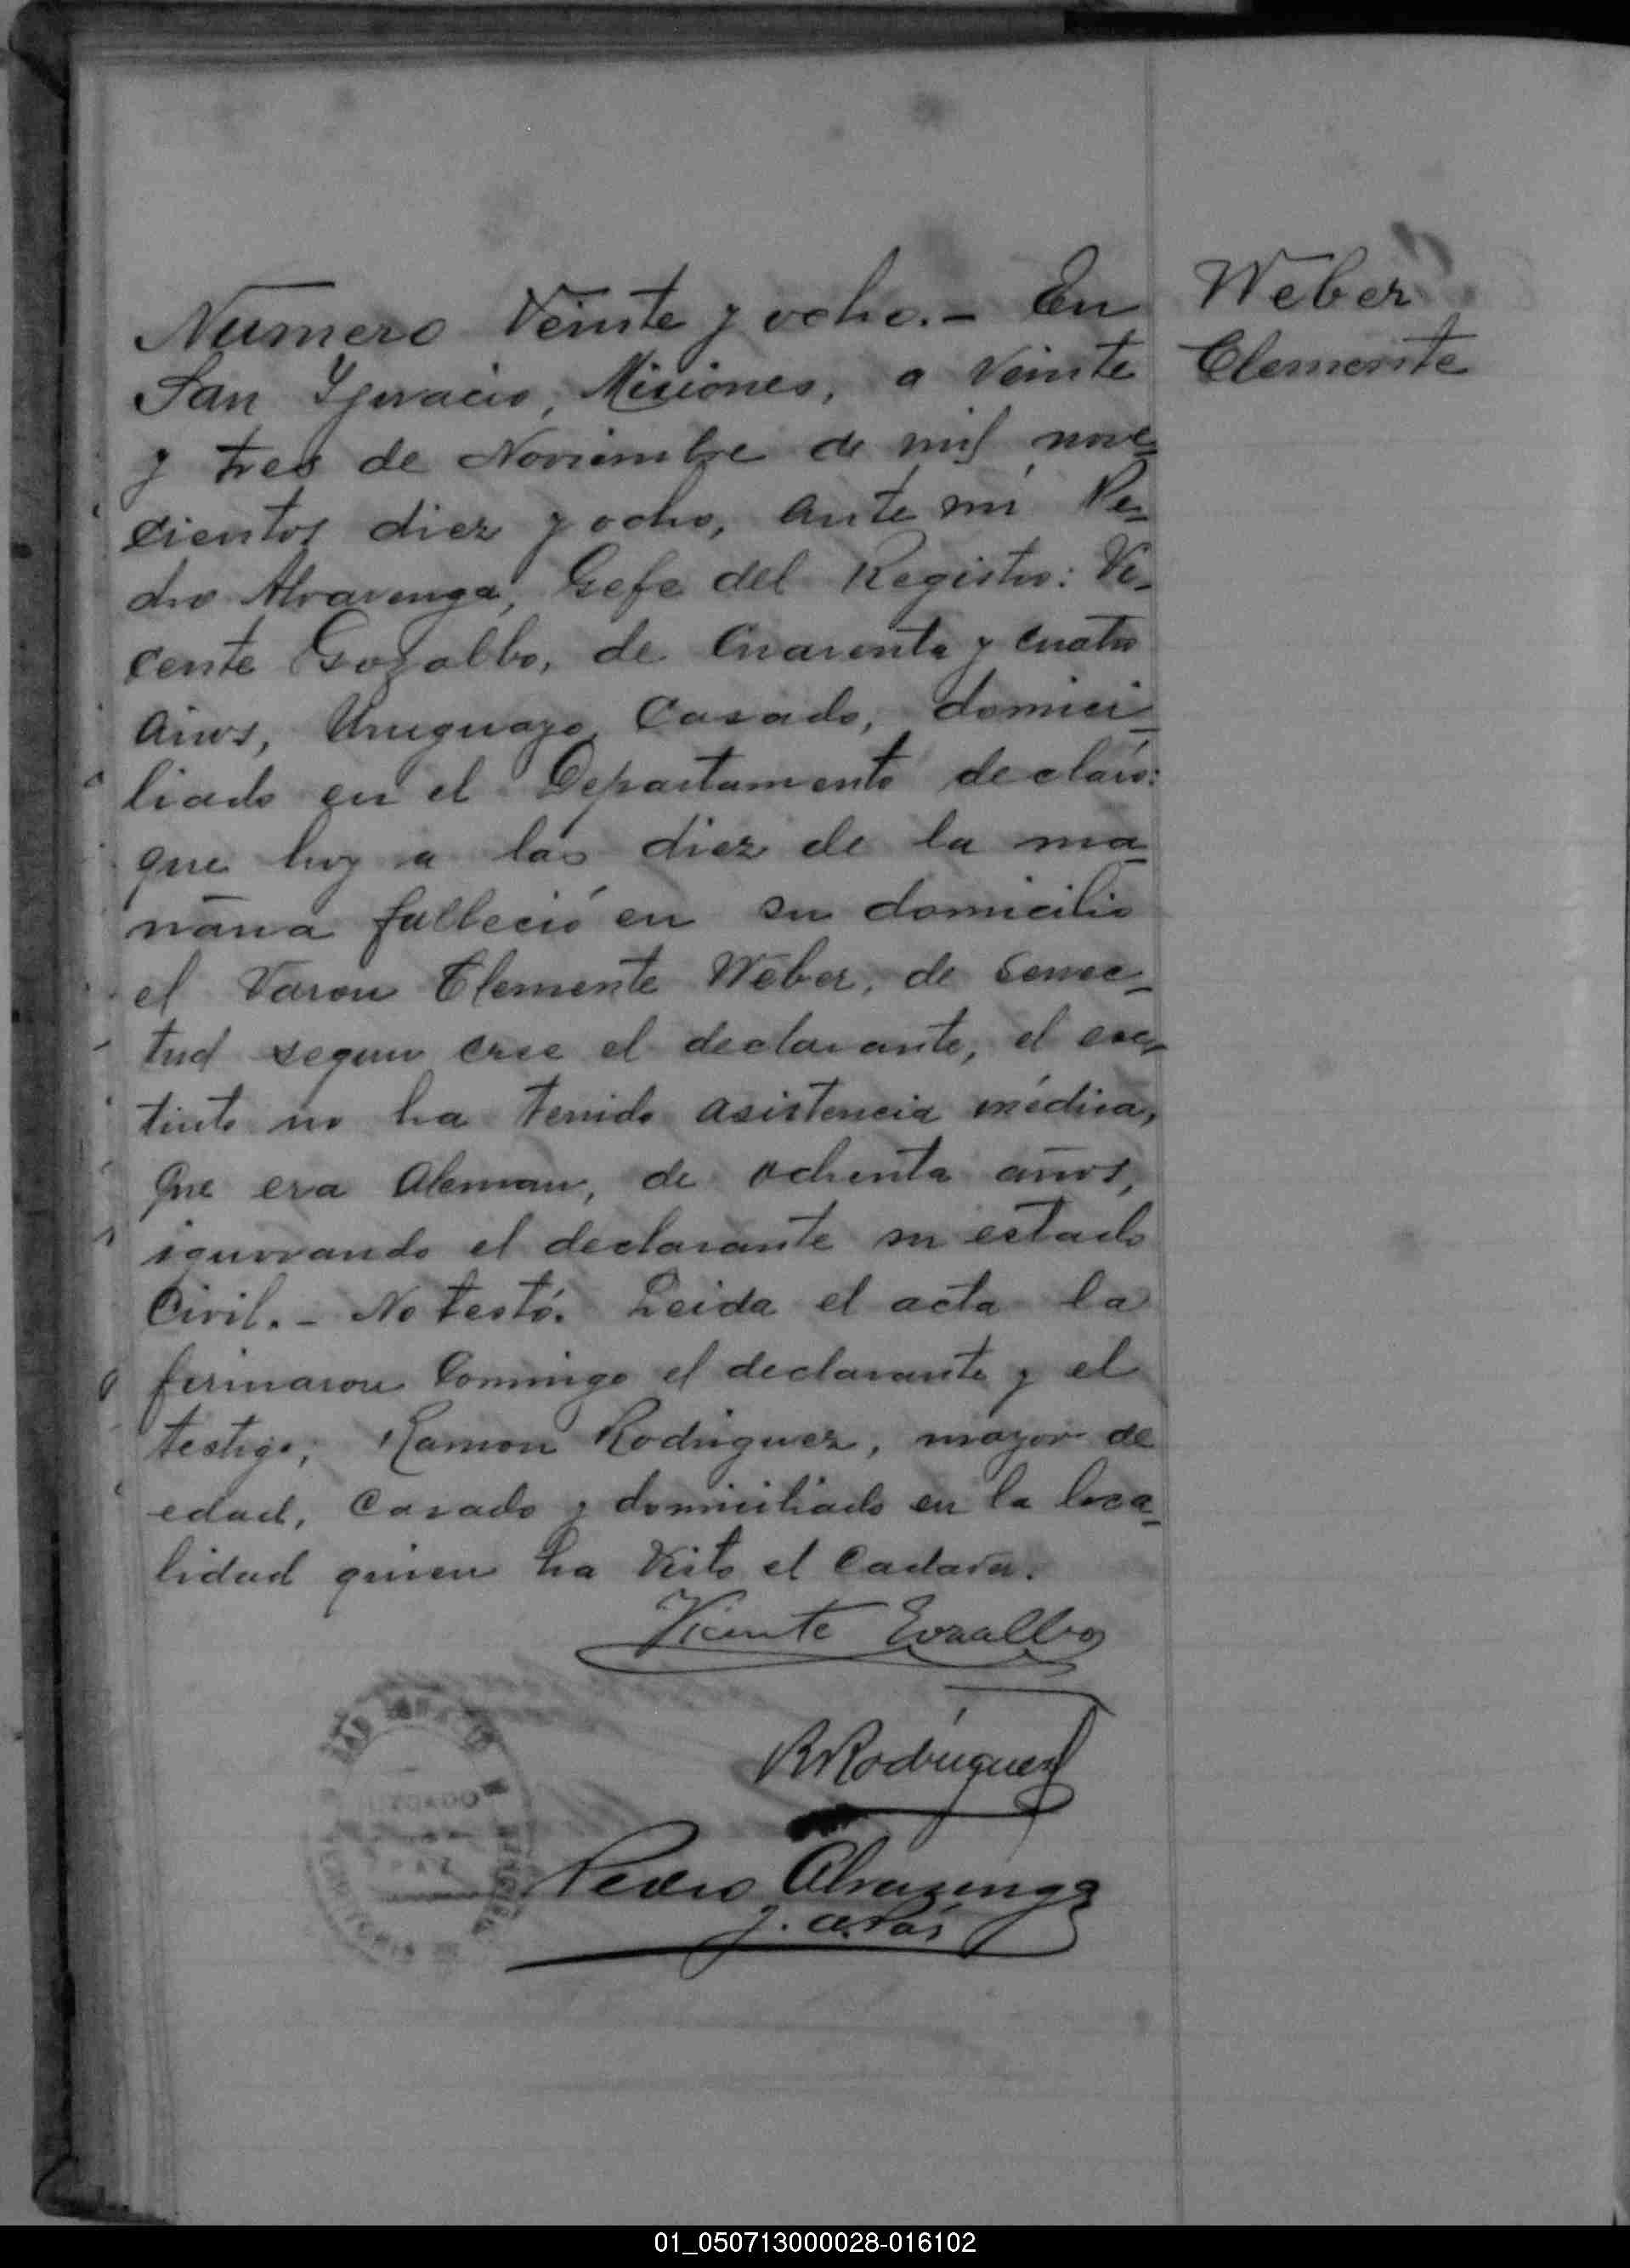 Numero Veinte y ocho.- En
San Ygnacio, Misiones, a Veinte
y tres de Noviembre de mil nove-
cientos diez y ocho, ante mí Pe-
dro Alvarenga, Gefe del Registro: Vi-
cente Gozalbo, de Cuarenta y cuatro
años, Uruguayo, Casado, domici-
liado en el Departamento declaró:
que hoy a las diez de la ma-
ñana falleció en su domicilio
el Varon Clemente Weber, de senec-
tud segun cree el declarante, el esc-
tinto no ha tenido asistencia médica,
que era Aleman, de ochenta años,
ignorando el declarante su estado
Civil.- No testó. Leida el acta la
firmaron Conmigo el declarante y el
testigo, Ramon Rodriguez, mayor de
edad, Casado y domiciliado en la loca-
lidad quien ha Visto el Cadaver.
Weber
Clemente
Vicente Gozalbo
R Rodriguez
Pedro Alvarenga
J. de Pas
SAN IGNACIO
JUZGADO
PAZ
01_050713000028-016102